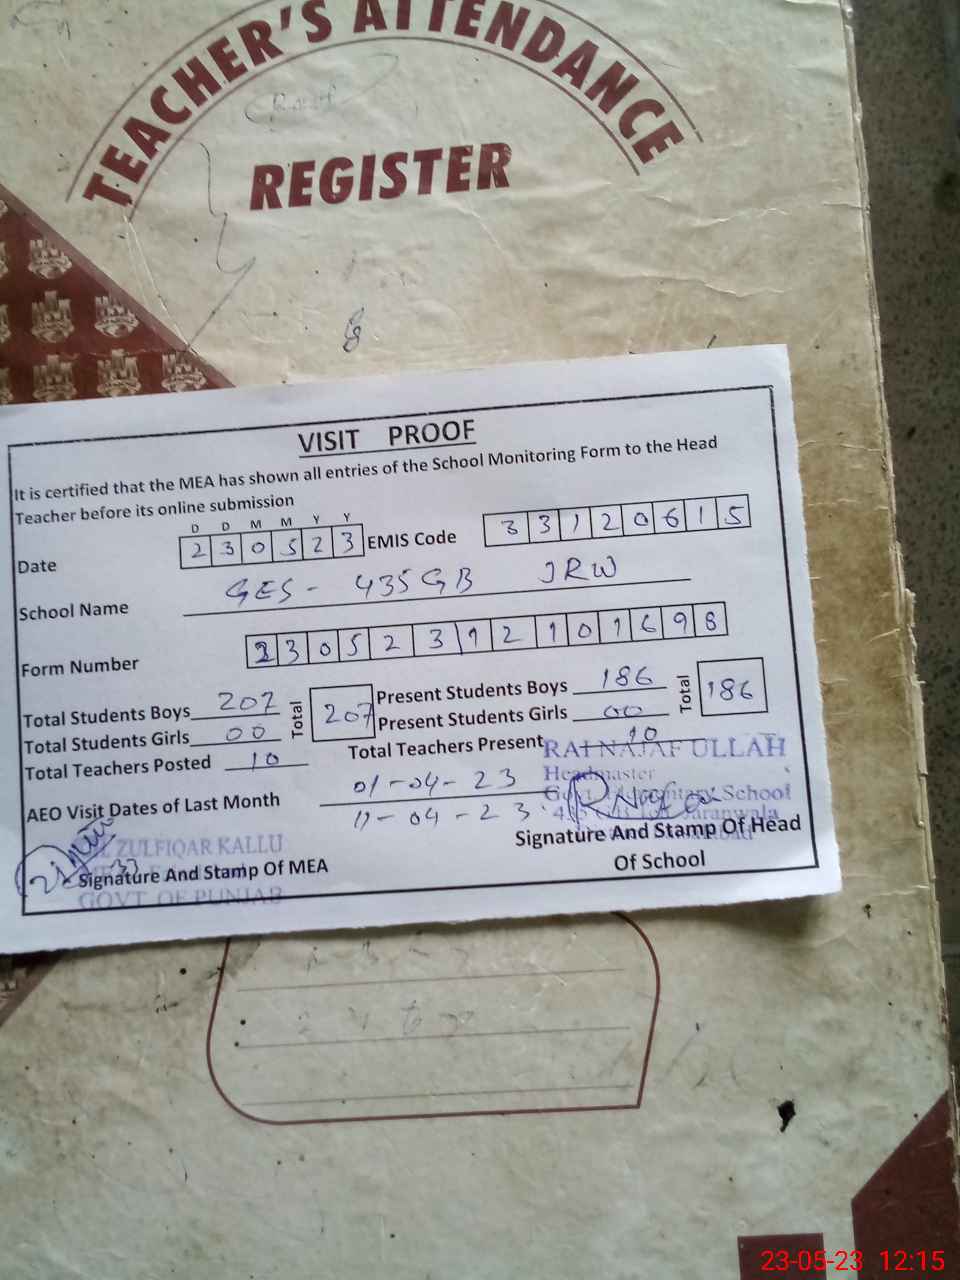 TEACHER'S ATTENDANCE
REGISTER
VISIT PROOF
It is certified that the MEA has shown all entries of the School Monitoring Form to the Head
Teacher before its online submission
D D M M Y Y
Date 2 3 0 5 2 3 EMIS Code 3 3 1 2 0 6 1 5
School Name GES - 435 GB JRW
Form Number 2 3 0 5 2 3 1 2 1 0 1 6 9 8
Total Students Boys 207 Total 207 Present Students Boys 186 Total 186
Total Students Girls 00 Present Students Girls 00
Total Teachers Posted 10 Total Teachers Present 10
RAI NAJAF ULLAH
Headmaster
Govt. Elementary School
Jaranwala
AEO Visit Dates of Last Month 01-04-23
11-04-23
ZULFIQAR KALLU
GOVT. OF PUNJAB
Signature And Stamp Of MEA
Signature And Stamp Of Head
Of School
23-05-23 12:15